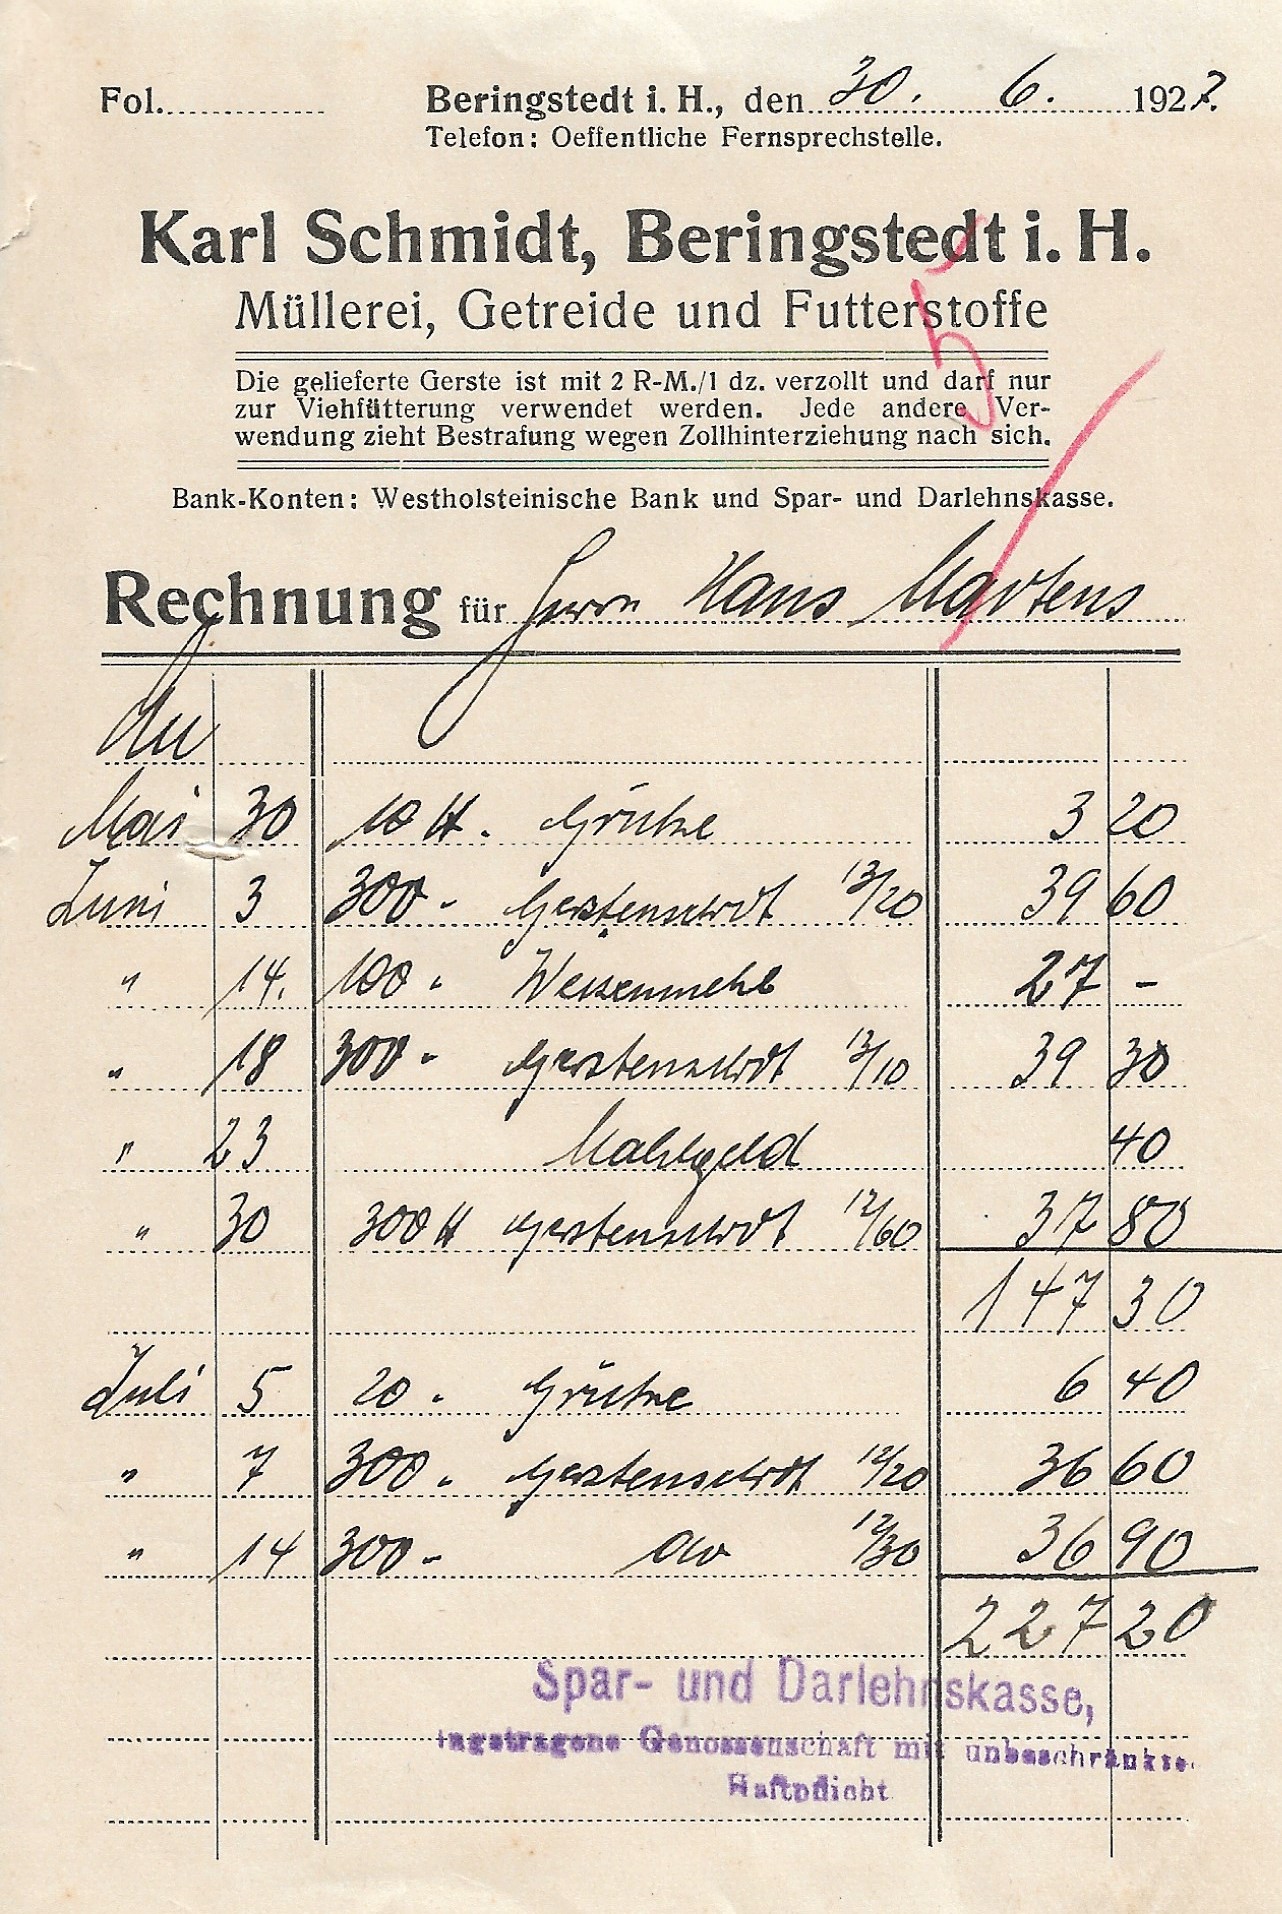 Fol. Beringstedt i. H., den 30. 6. 1927.
Telefon: Oeffentliche Fernsprechstelle.
Karl Schmidt, Beringstedt i. H.
Müllerei, Getreide und Futterstoffe
Die gelieferte Gerste ist mit 2 R-M./1 dz. verzollt und darf nur
zur Viehfütterung verwendet werden. Jede andere Ver-
wendung zieht Bestrafung wegen Zollhinterziehung nach sich.
Bank-Konten: Westholsteinische Bank und Spar- und Darlehnskasse.
Rechnung für Herrn Hans Martens
An
Mai 30 10 ℔. Grütze 3 20
Juni 3 300 - Gerstenschrot 13/20 39 60
" 14. 100 - Weizenmehl 27 -
" 18 300 - Gerstenschrot 13/10 39 30
" 23 Mahlgeld 40
" 30 300 ℔ Gerstenschrot 12/60 37 80
147 30
Juli 5 20 - Grütze 6 40
" 7 300 - Gerstenschrot 12/20 36 60
" 14 300 - do 12/30 36 90
227 20
Spar- und Darlehnskasse,
ingetragene Genossenschaft mit unbeschränkte
Haftpflicht